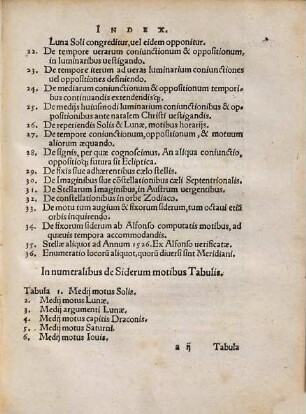 INDEX.
Luna Soli congreditur, uel eidem opponitur.
22. De tempore uerarum coniunctionum & oppositionum,
in luminaribus uestigando.
23. De tempore iterum ad ueras luminarium coniunctiones
uel oppositiones definiendo.
24. De mediarum coniunctionum & oppositionum tempori
bus continuandis extendendisq;.
25. De medijs huiusmodi luminarium coniunctionibus & op
positionibus ante natalem Christi uestigandis.
26. De reperiendis Solis & Lunæ, motibus horarijs.
27. De tempore coniunctionum, oppositionum, & motuum
aliorum æquando.
28. De signis, per quæ cognoscimus. An aliqua coniunctio,
oppositioq; futura sit Ecliptica.
29. De fixis siue adhærentibus cælo stellis.
30. De Imaginibus siue cōstellationibus cæli Septentrionalis.
31. De Stellarum Imaginibus, in Austrum uergentibus.
32. De constellationibus in orbe Zodiaco.
33. De motu tum augium & fixorum siderum, tum octaui etiā
orbis inquirendo.
34. De fixorum siderum ab Alfonso computatis motibus, ad
quæuis tempora accommodandis.
35. Stellæ aliquot ad Annum 1526. Ex Alfonso uerificatæ.
36. Enumeratio locorū aliquot, quorū diuersi sint Meridiani.
In numeralibus de Siderum motibus Tabulis.
Tabula 1. Medij motus Solis.
2. Medij motus Lunæ.
3. Medij argumenti Lunæ.
4. Medij motus capitis Draconis.
5. Medij motus Saturni.
6. Medij motus Iouis.
a ij Tabula